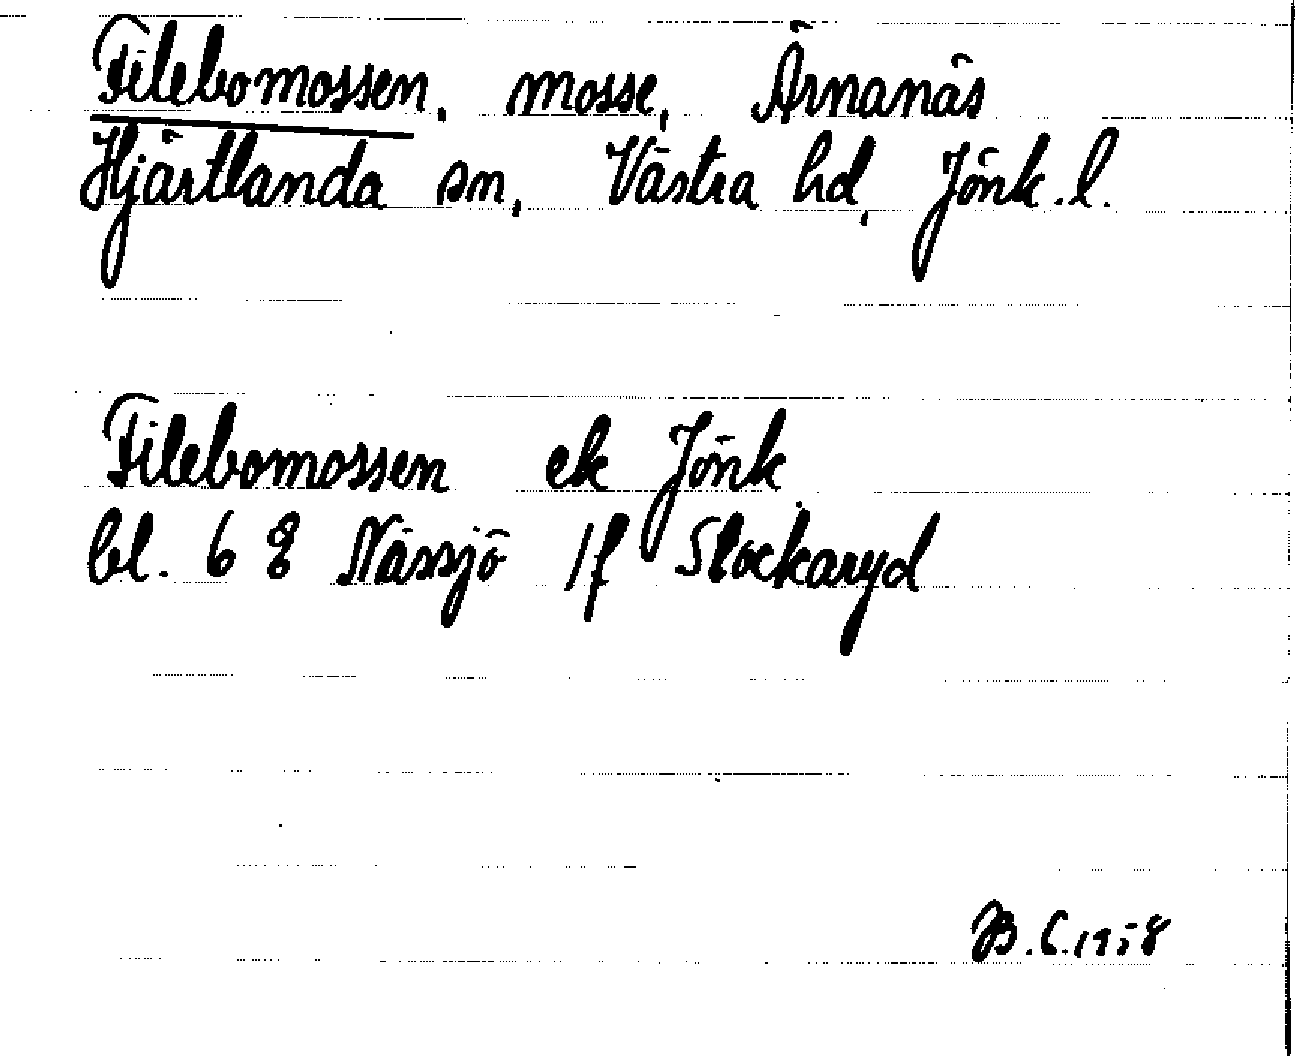 Filebomossen, mosse, Ärnanäs
Hjärtlanda sn, Västra hd, Jönk. l.
Filebomossen ek Jönk.
bl. 6 E Nässjö 1f Stockaryd
B.C. 1958